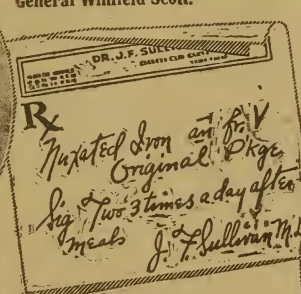 General Winfield Scott.
DR. J. F. SULL
Rx
Nuxated Iron
Original P'kge
Sig Two 3 times a day after
meals J. F. Sullivan M.D